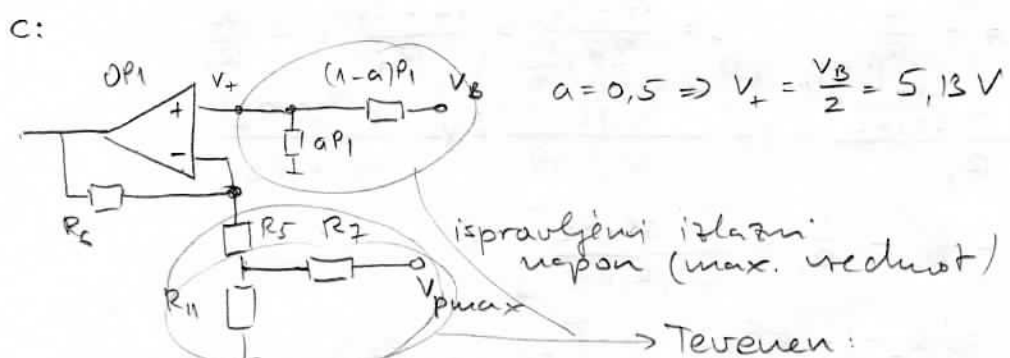 C:
OP1 V+ (1-a)P1 VB
a = 0,5 ⇒ V+ = VB/2 = 5,13 V
+
aP1
-
R6 R5 R7
ispravljeni izlazni
napon (max. vrednost)
R11 Vpmax
→ Tevenen: